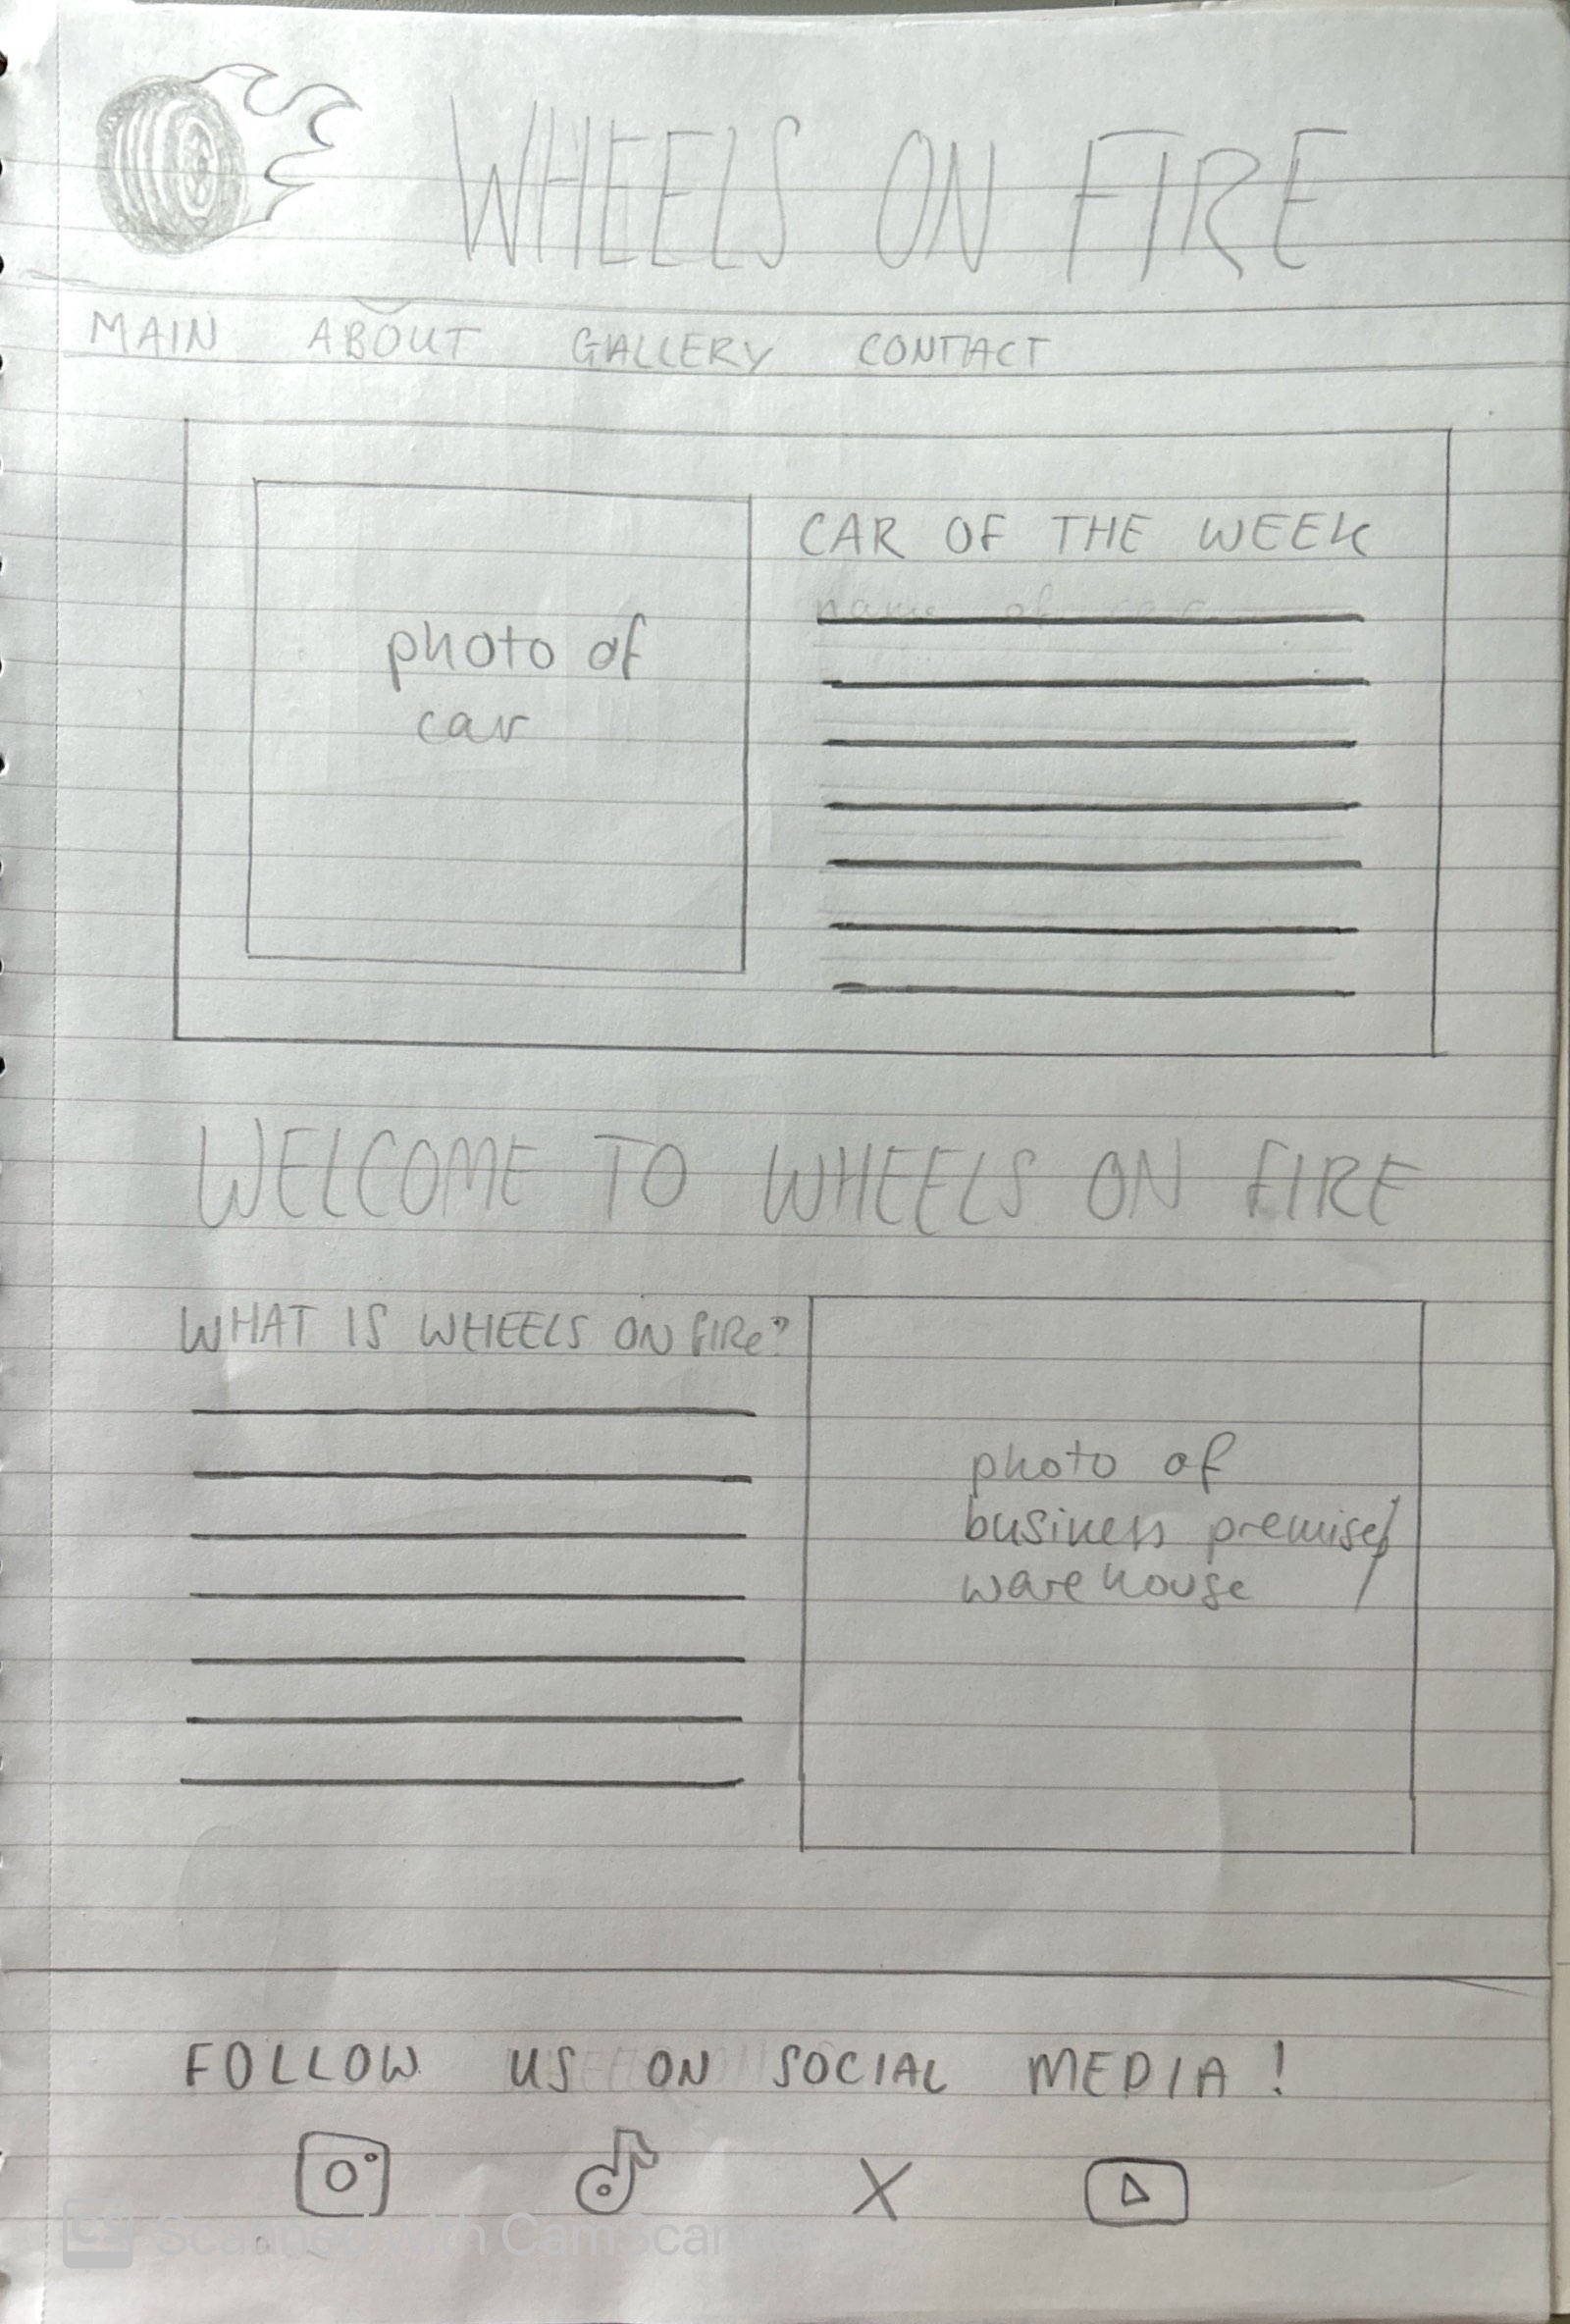 WHEELS ON FIRE
MAIN ABOUT GALLERY CONTACT
CAR OF THE WEEK
name of car
photo of
car
WELCOME TO WHEELS ON FIRE
WHAT IS WHEELS ON FIRe?
photo of
business premises/
warehouse
FOLLOW US ON SOCIAL MEDIA!
X
CS Scanned with CamScanner